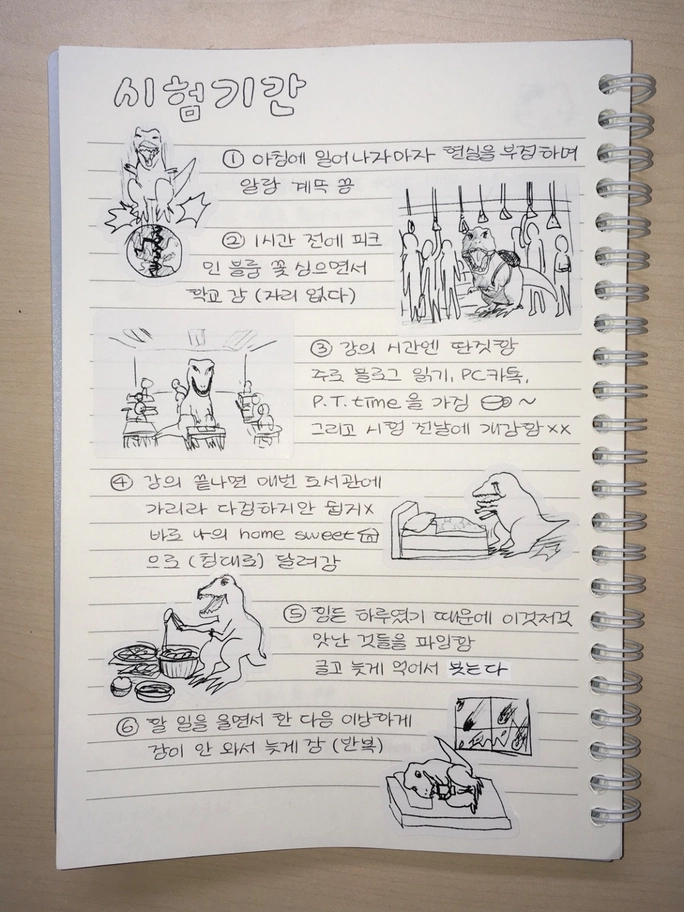 시험기간
① 아침에 일어나자마자 현실을 부정하며
알람 계뚝 끔
② 1시간 전에 피크
인 블룸 꽃 싱으면서
학교 감 (자리 없다)
③ 강의 시간엔 딴짓함
주로 블로그 읽기, PC카톡,
P.T. time을 가짐 ~
그리고 시험 전날에 개감함 xx
④ 강의 끝나면 매번 도서관에
가리라 다짐하지만 쉽지x
바로 나의 home sweet
으로 (침대로) 달려감
⑤ 힘든 하루였기 때문에 이것저것
맛난 것들을 파임함
글고 늦게 먹어서 붓는다
⑥ 할 일을 울면서 한 다음 이상하게
잠이 안 와서 늦게 잠 (반복)